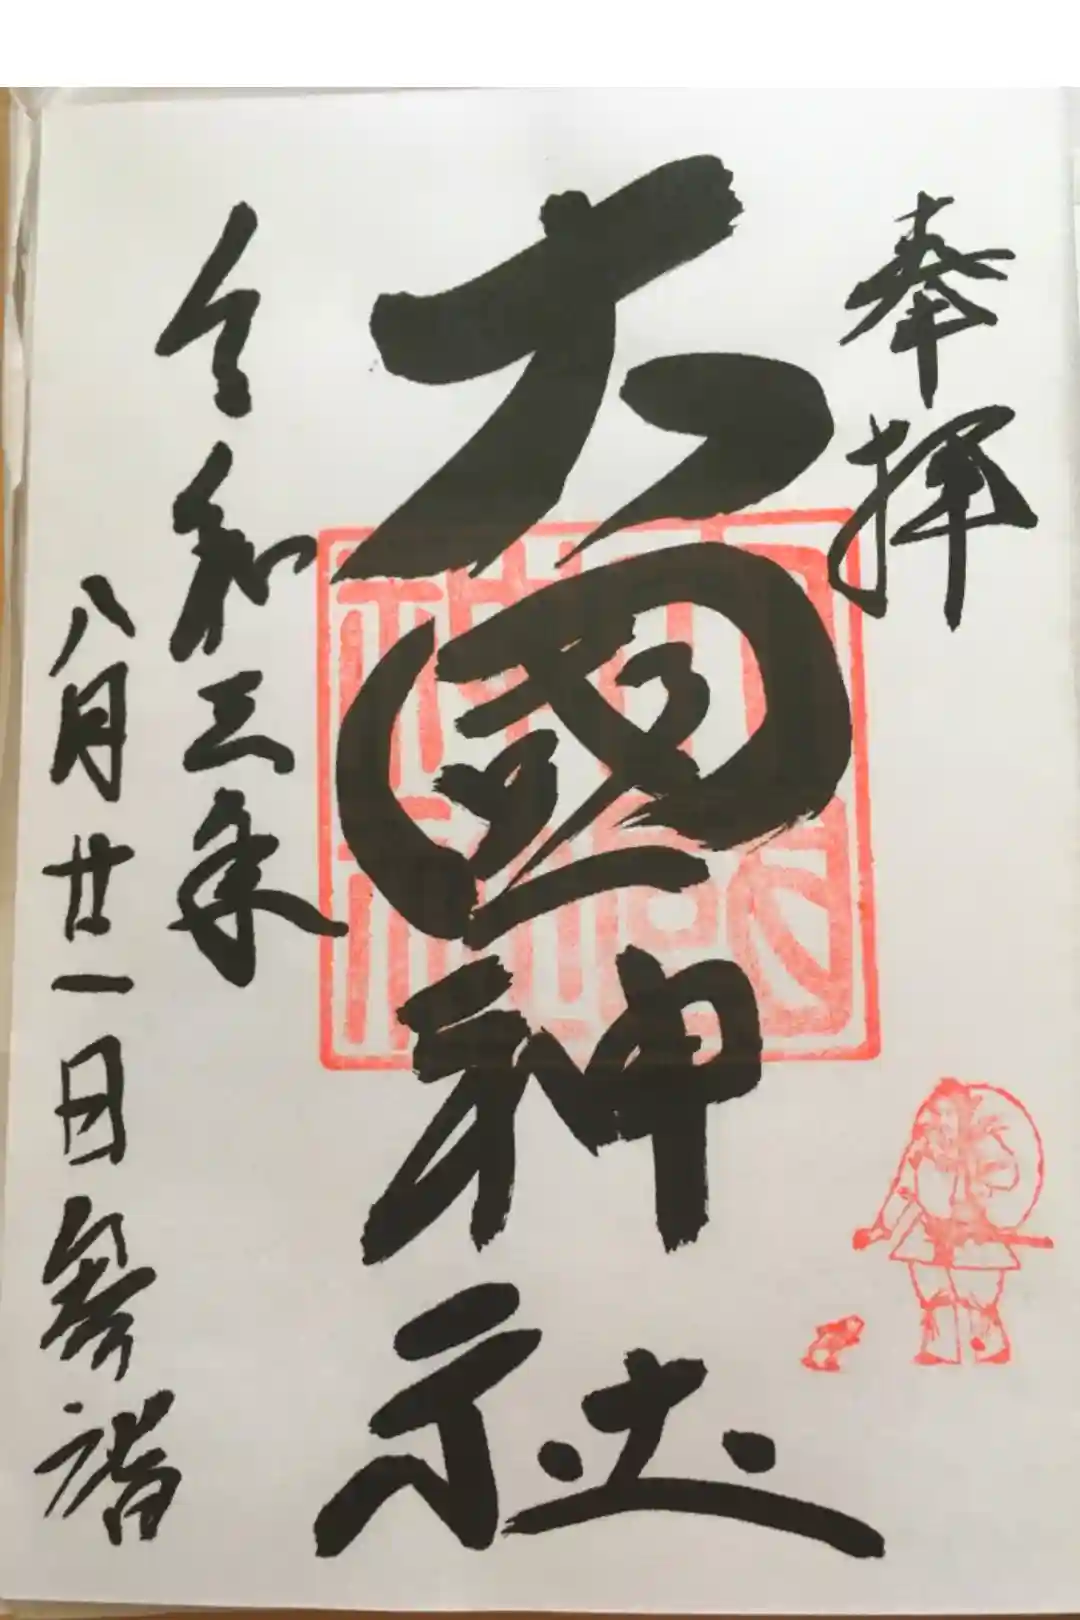 奉拝
大國神社
令和三年
八月廿一日参詣